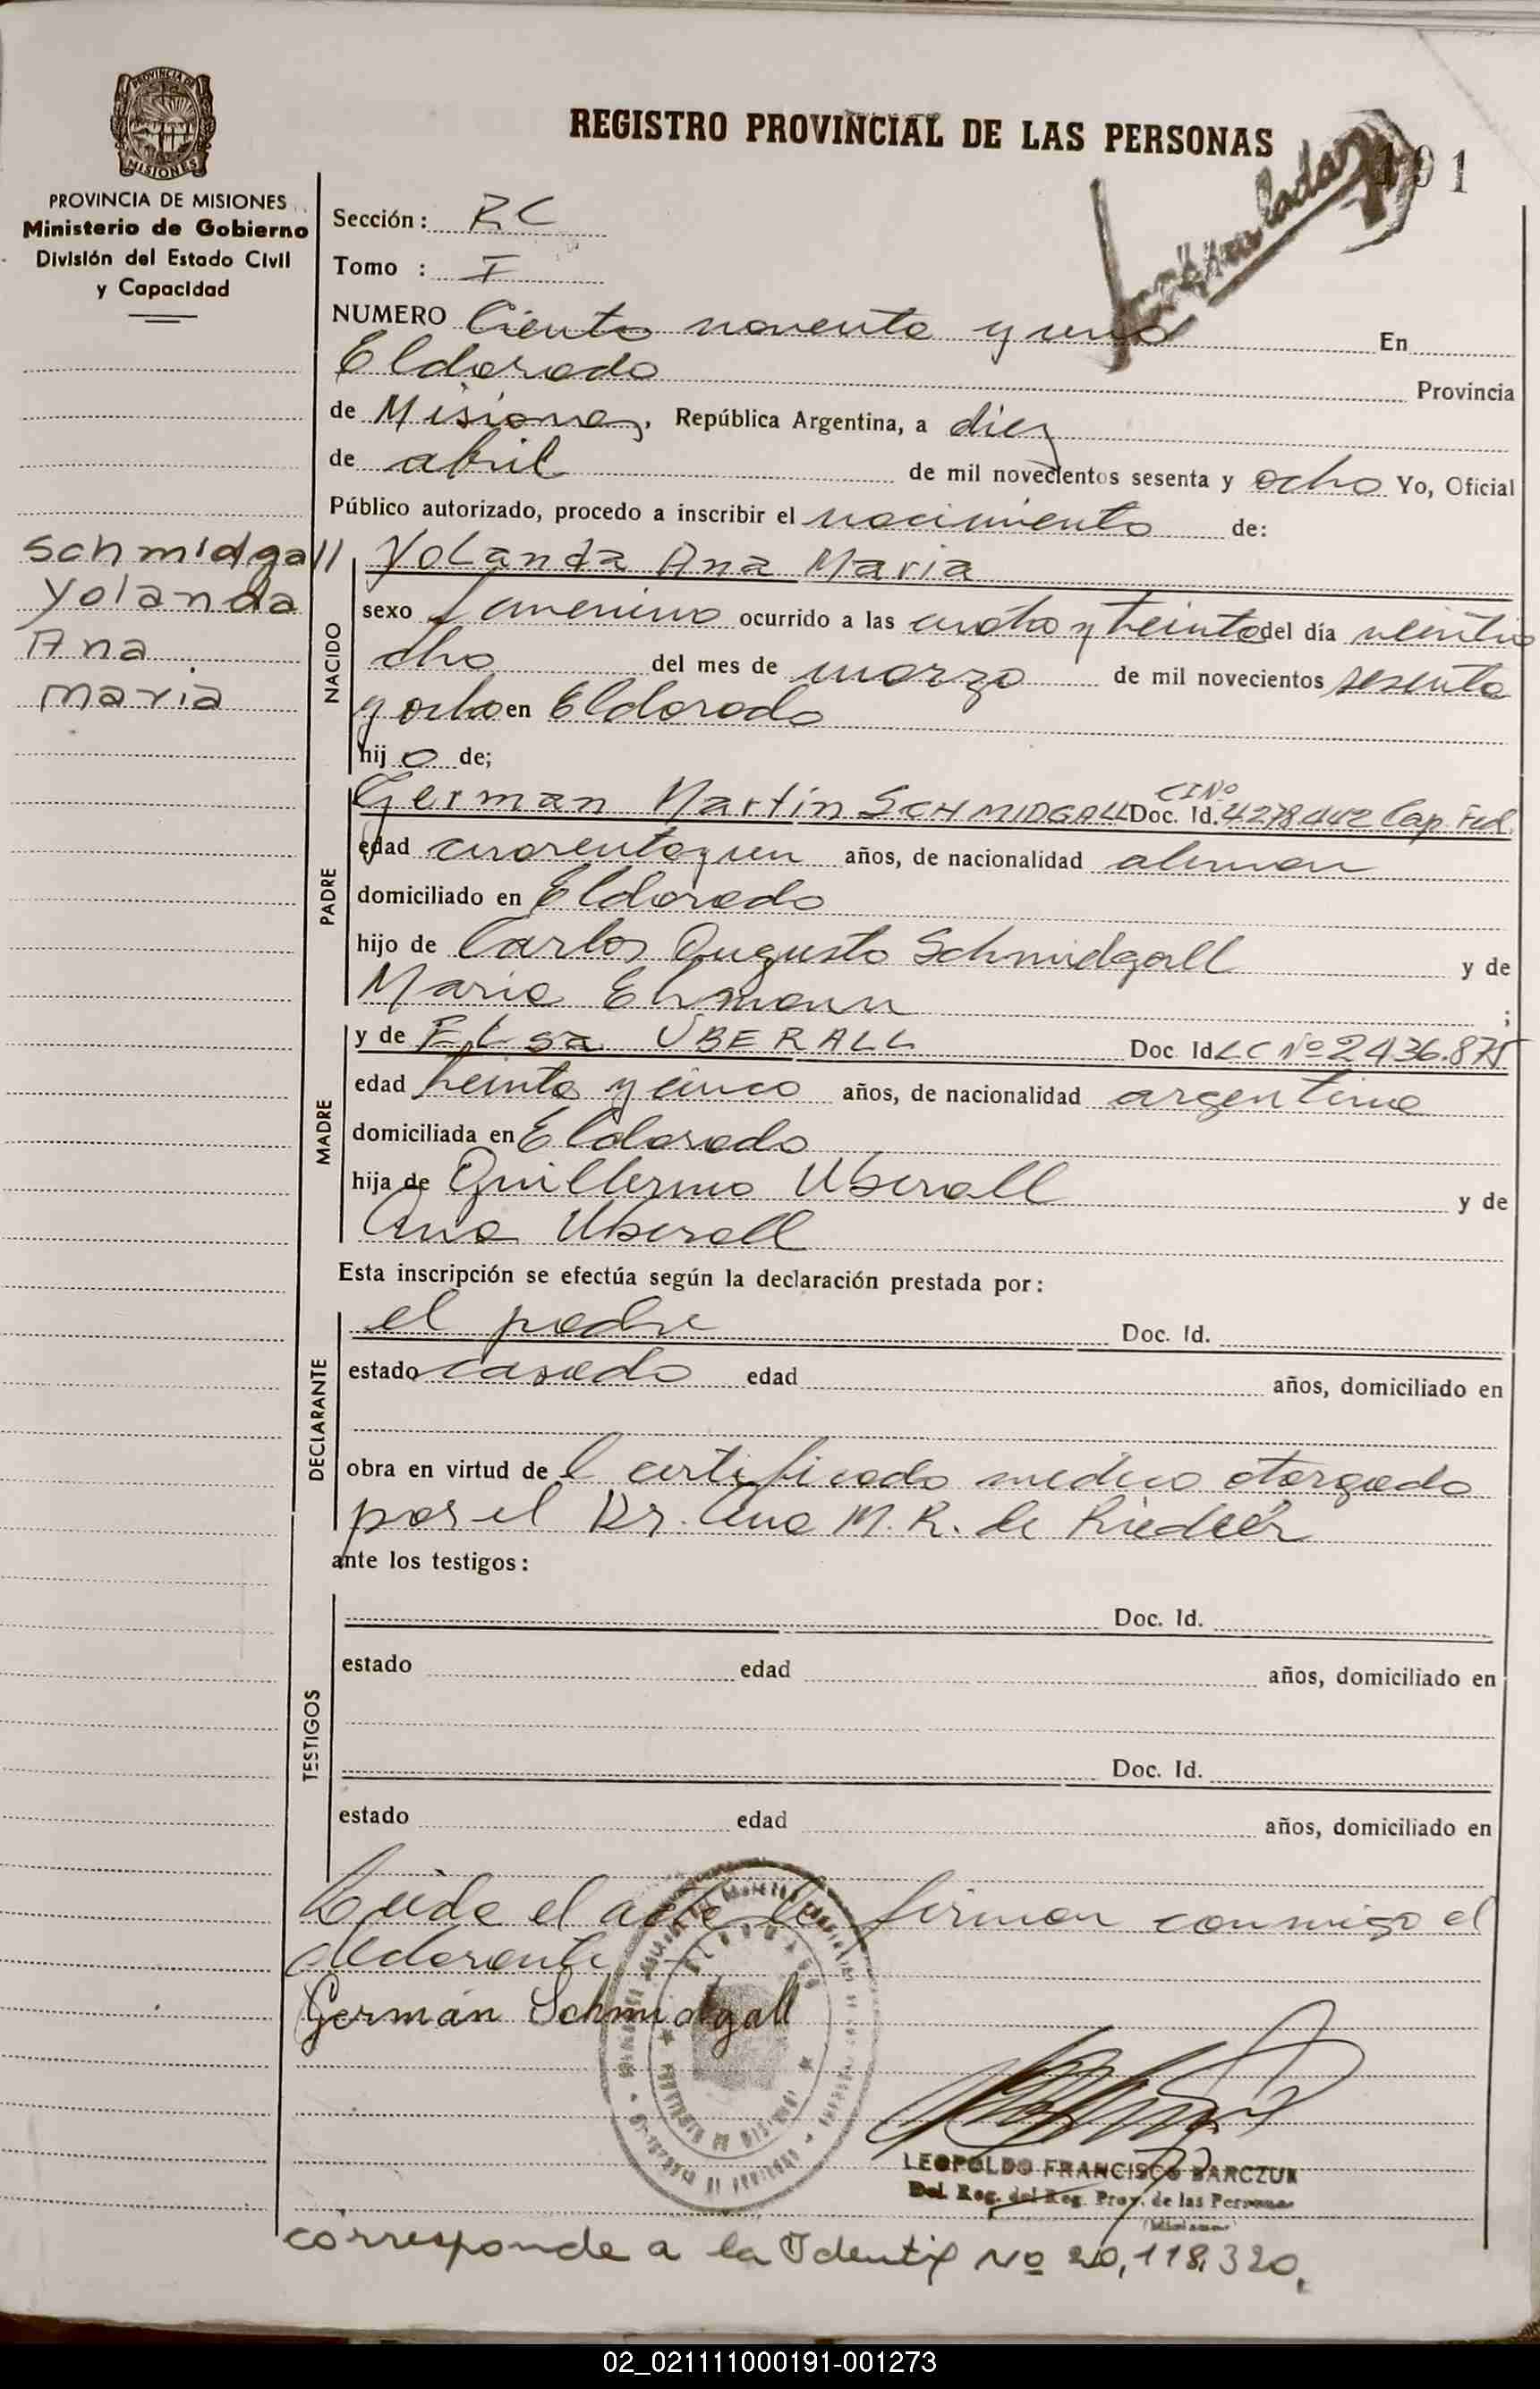 REGISTRO PROVINCIAL DE LAS PERSONAS
191
PROVINCIA DE MISIONES
Ministerio de Gobierno
División del Estado Civil
y Capacidad
Sección: RC
Tomo : I
NUMERO Ciento noventa y uno En
Eldorado Provincia
de Misiones, República Argentina, a diez
de abril de mil novecientos sesenta y ocho Yo, Oficial
Público autorizado, procedo a inscribir el nacimiento de:
Schmidgall
Yolanda
Ana
Maria
NACIDO
Yolanda Ana Maria
sexo femenino ocurrido a las cuatro y treinta del día veintio
cho del mes de marzo de mil novecientos sesenta
y ocho en Eldorado
hij o de;
PADRE
German Martin SCHMIDGALL Doc. Id. CI Nº 4278442 Cap. Fed.
edad cuarenta y un años, de nacionalidad aleman
domiciliado en Eldorado
hijo de Carlos Augusto Schmidgall y de
Maria Ehmann ;
MADRE
y de Elsa ÜBERALL Doc Id LC Nº 2436.875
edad treinta y cinco años, de nacionalidad argentina
domiciliada en Eldorado
hija de Guillermo Uberall y de
Ana Uberall
Esta inscripción se efectúa según la declaración prestada por:
DECLARANTE
el padre Doc. Id.
estado casado edad años, domiciliado en
obra en virtud de l certificado medico otorgado
por el Dr. Ana M. R. de
ante los testigos:
TESTIGOS
Doc. Id.
estado edad años, domiciliado en
Doc. Id.
estado edad años, domiciliado en
Leida el acta la firman conmigo el
declarante
Germán Schmidgall
LEOPOLDO FRANCISCO BARCZUK
Del. Reg. del Reg. Prov. de las Personas
(Misiones)
corresponde a la Identif Nº 20,118,320.
02_021111000191-001273